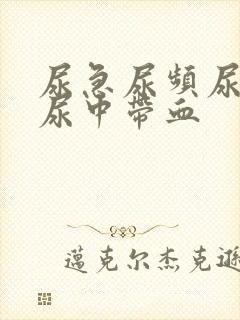 尿急尿頻尿
尿中帶血
邁克尔杰克遜